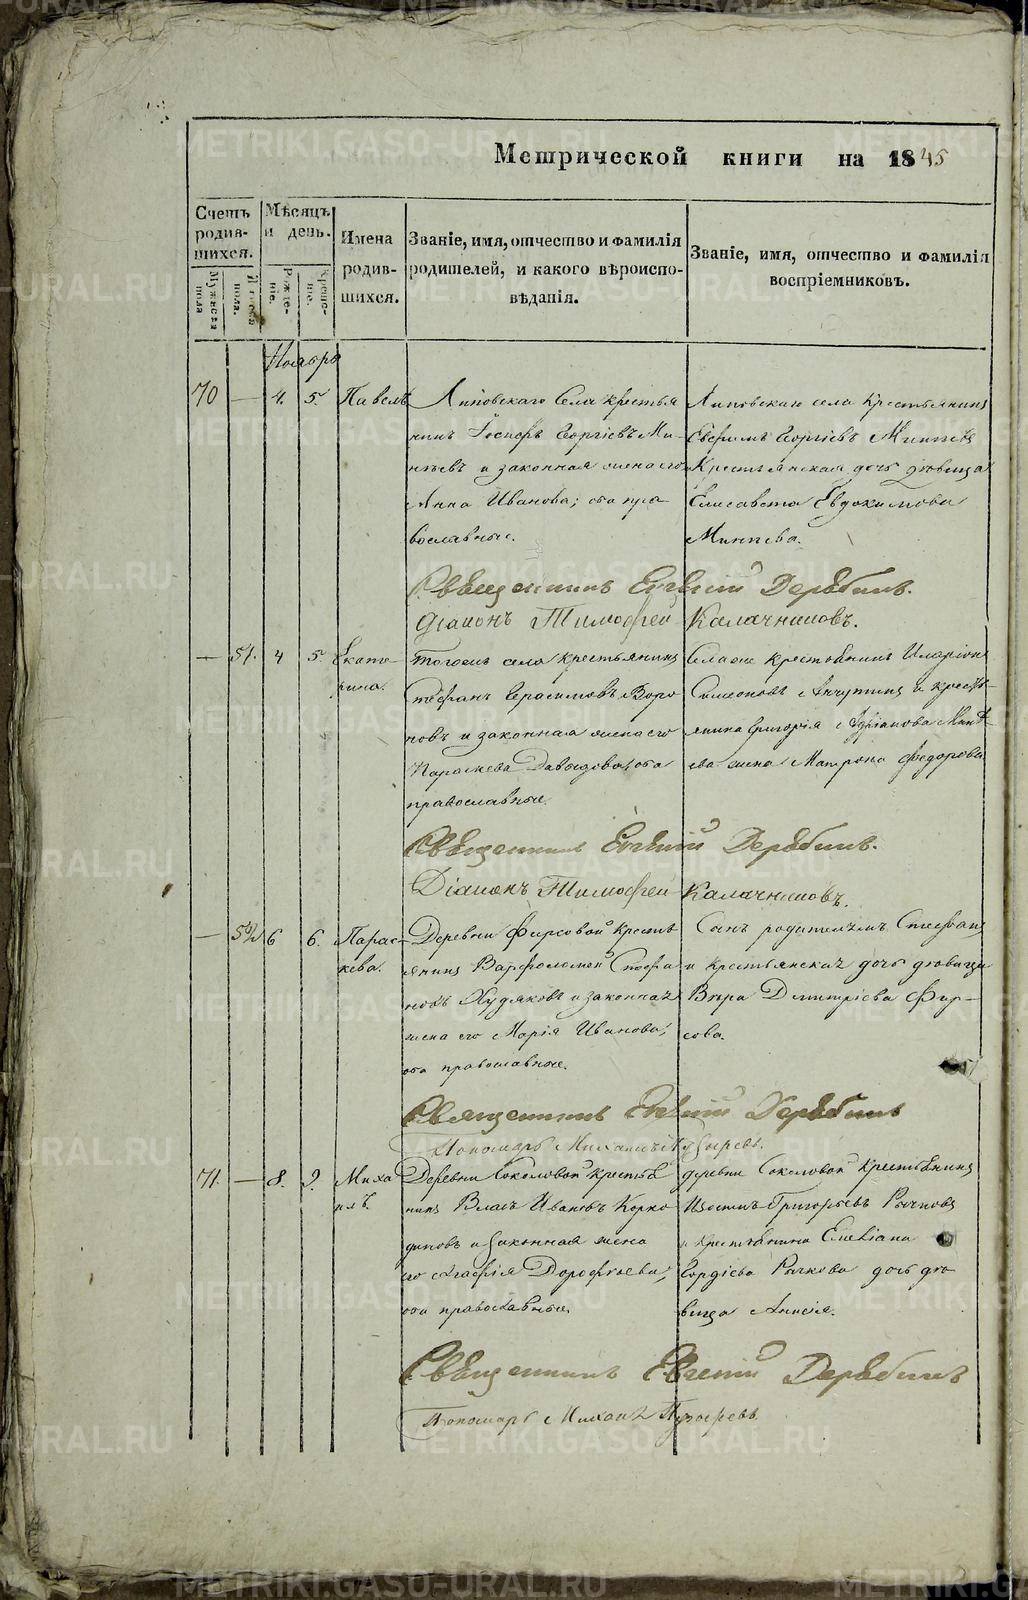 Метрической книги на 1845
Счетъ родив-шихся.
Мужеска пола
Женска пола.
Мѣсяцъ и день.
Рожде-нія.
Креще-нія.
Имена родив-шихся.
Званіе, имя, отчество и фамилія родителей, и какого вѣроиспо-вѣданія.
Званіе, имя, отчество и фамилія воспріемниковъ.
Ноябрь
70 — 4. 5. Павелъ
Липовскаго Села крестья
нинъ Іосифъ Георгіевъ Ми-
нѣевъ и законная жена его
Анна Иванова; оба пра
вославные.
Липовскаго села крестьянинъ
Ефремъ Георгіевъ Минѣевъ
и Крестьянская дочь дѣвица
Елисавета Евдокимова
Минѣева.
Священникъ Евгений Дерябинъ.
Діаконъ Тимофей Калачниковъ.
— 51. 4 5. Екате-
рина.
Тогожъ села крестьянинъ
Стефанъ Герасимовъ Воро
новъ и законная жена его
Параскева Давыдова; оба
православные.
Села же крестьянинъ Иларіонъ
Симеоновъ Анчутинъ и крестья-
янина Григорія Адріанова Минѣ-
ева жена Матрона Федорова
Священникъ Евгений Дерябинъ.
Діаконъ Тимофей Калачниковъ.
— 52 6 6. Парас-
кева.
Деревни Фирсовой крестья
янинъ Варфоломей Стефа
новъ Худяковъ и законная
жена его Марія Иванова;
оба православные.
Сынъ родителямъ Стефанъ
и крестьянская дочь дѣвица
Вѣра Димитріева Фир-
сова.
Священникъ Евгений Дерябинъ
Пономарь Михаилъ Пузыревъ.
71. — 8. 9. Миха
илъ.
Деревни Соколовой крестья
нинъ Власъ Ивановъ Корко
диновъ и законная жена
его Агафія Дорофѣева;
оба православные.
деревни Соколовой крестьянинъ
Іустинъ Григорьевъ Рычковъ
и крестьянина Емеліана
Гордіева Рычкова дочь дѣ
вица Анисія.
Священникъ Евгений Дерябинъ
Пономарь Михаилъ Пузыревъ.
METRIKI.GASO-URAL.RU